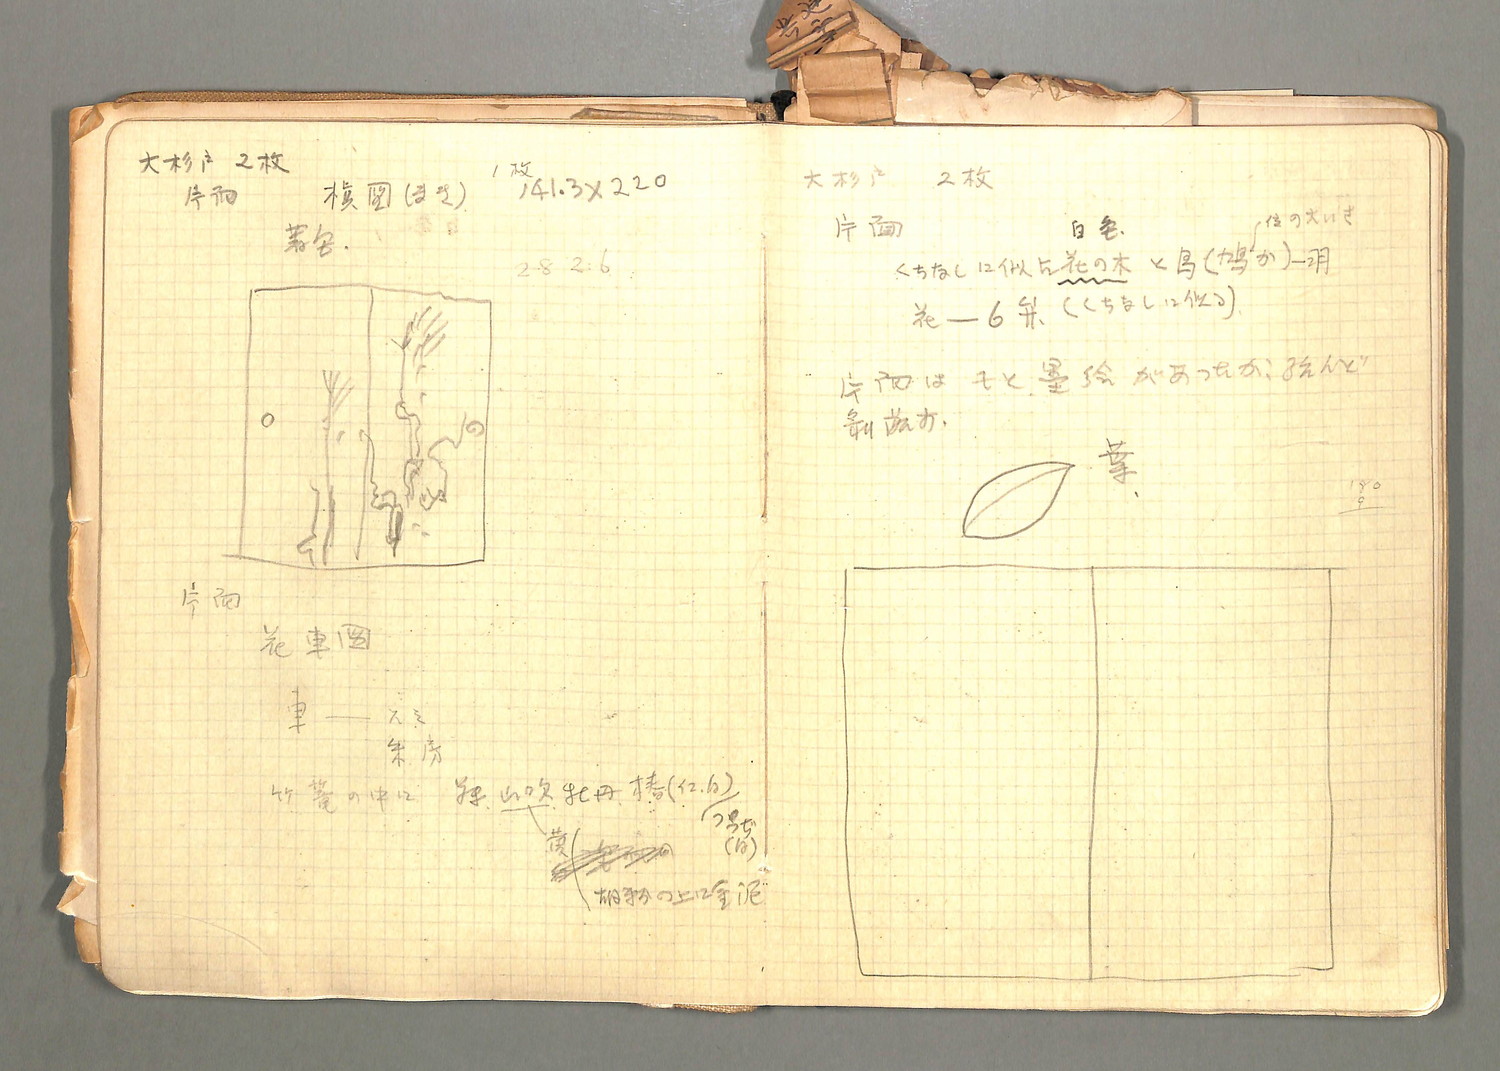 大杉戸 2枚
片面 槇圖(まき) 1枚 141.3×220
著色.
282.6
片面
花車図
車——
朱房
竹籠の中に 山吹 牡丹 椿(仁.白)
黄 (白)
胡粉の上に金泥
大杉戸 2枚
片面 白色. 位の大いさ
くちなしに似た花の木と鳥(鳩か)一羽
花—6弁 (くちなしに似る)
片面は もと墨絵があったが、殆んど
剥落す.
葉